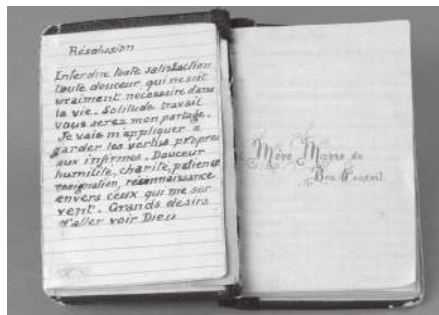 Résolusion
Interdire toute satisfaction
toute douceur qui ne soit
vraiment necessaire dans
la vie. Solitude travail
vous serez mon partage.
Je vais m'appliquer a
garder les vertus propres
aux infirmes. Douceur
humilité, charité, patience
resignation, réconnaissance
envers ceux qui me ser
vent. Grands desirs
d'aller voir Dieu
Mère Marie du
Bon